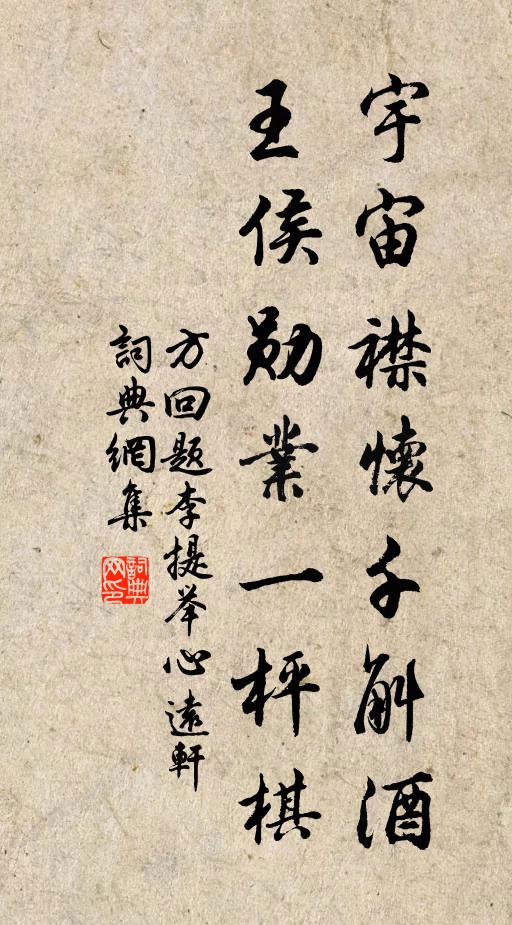 宇宙襟懷千斛酒
王侯勛業一枰棋
方回题李提举心遠軒
詞典網集
詞典网印